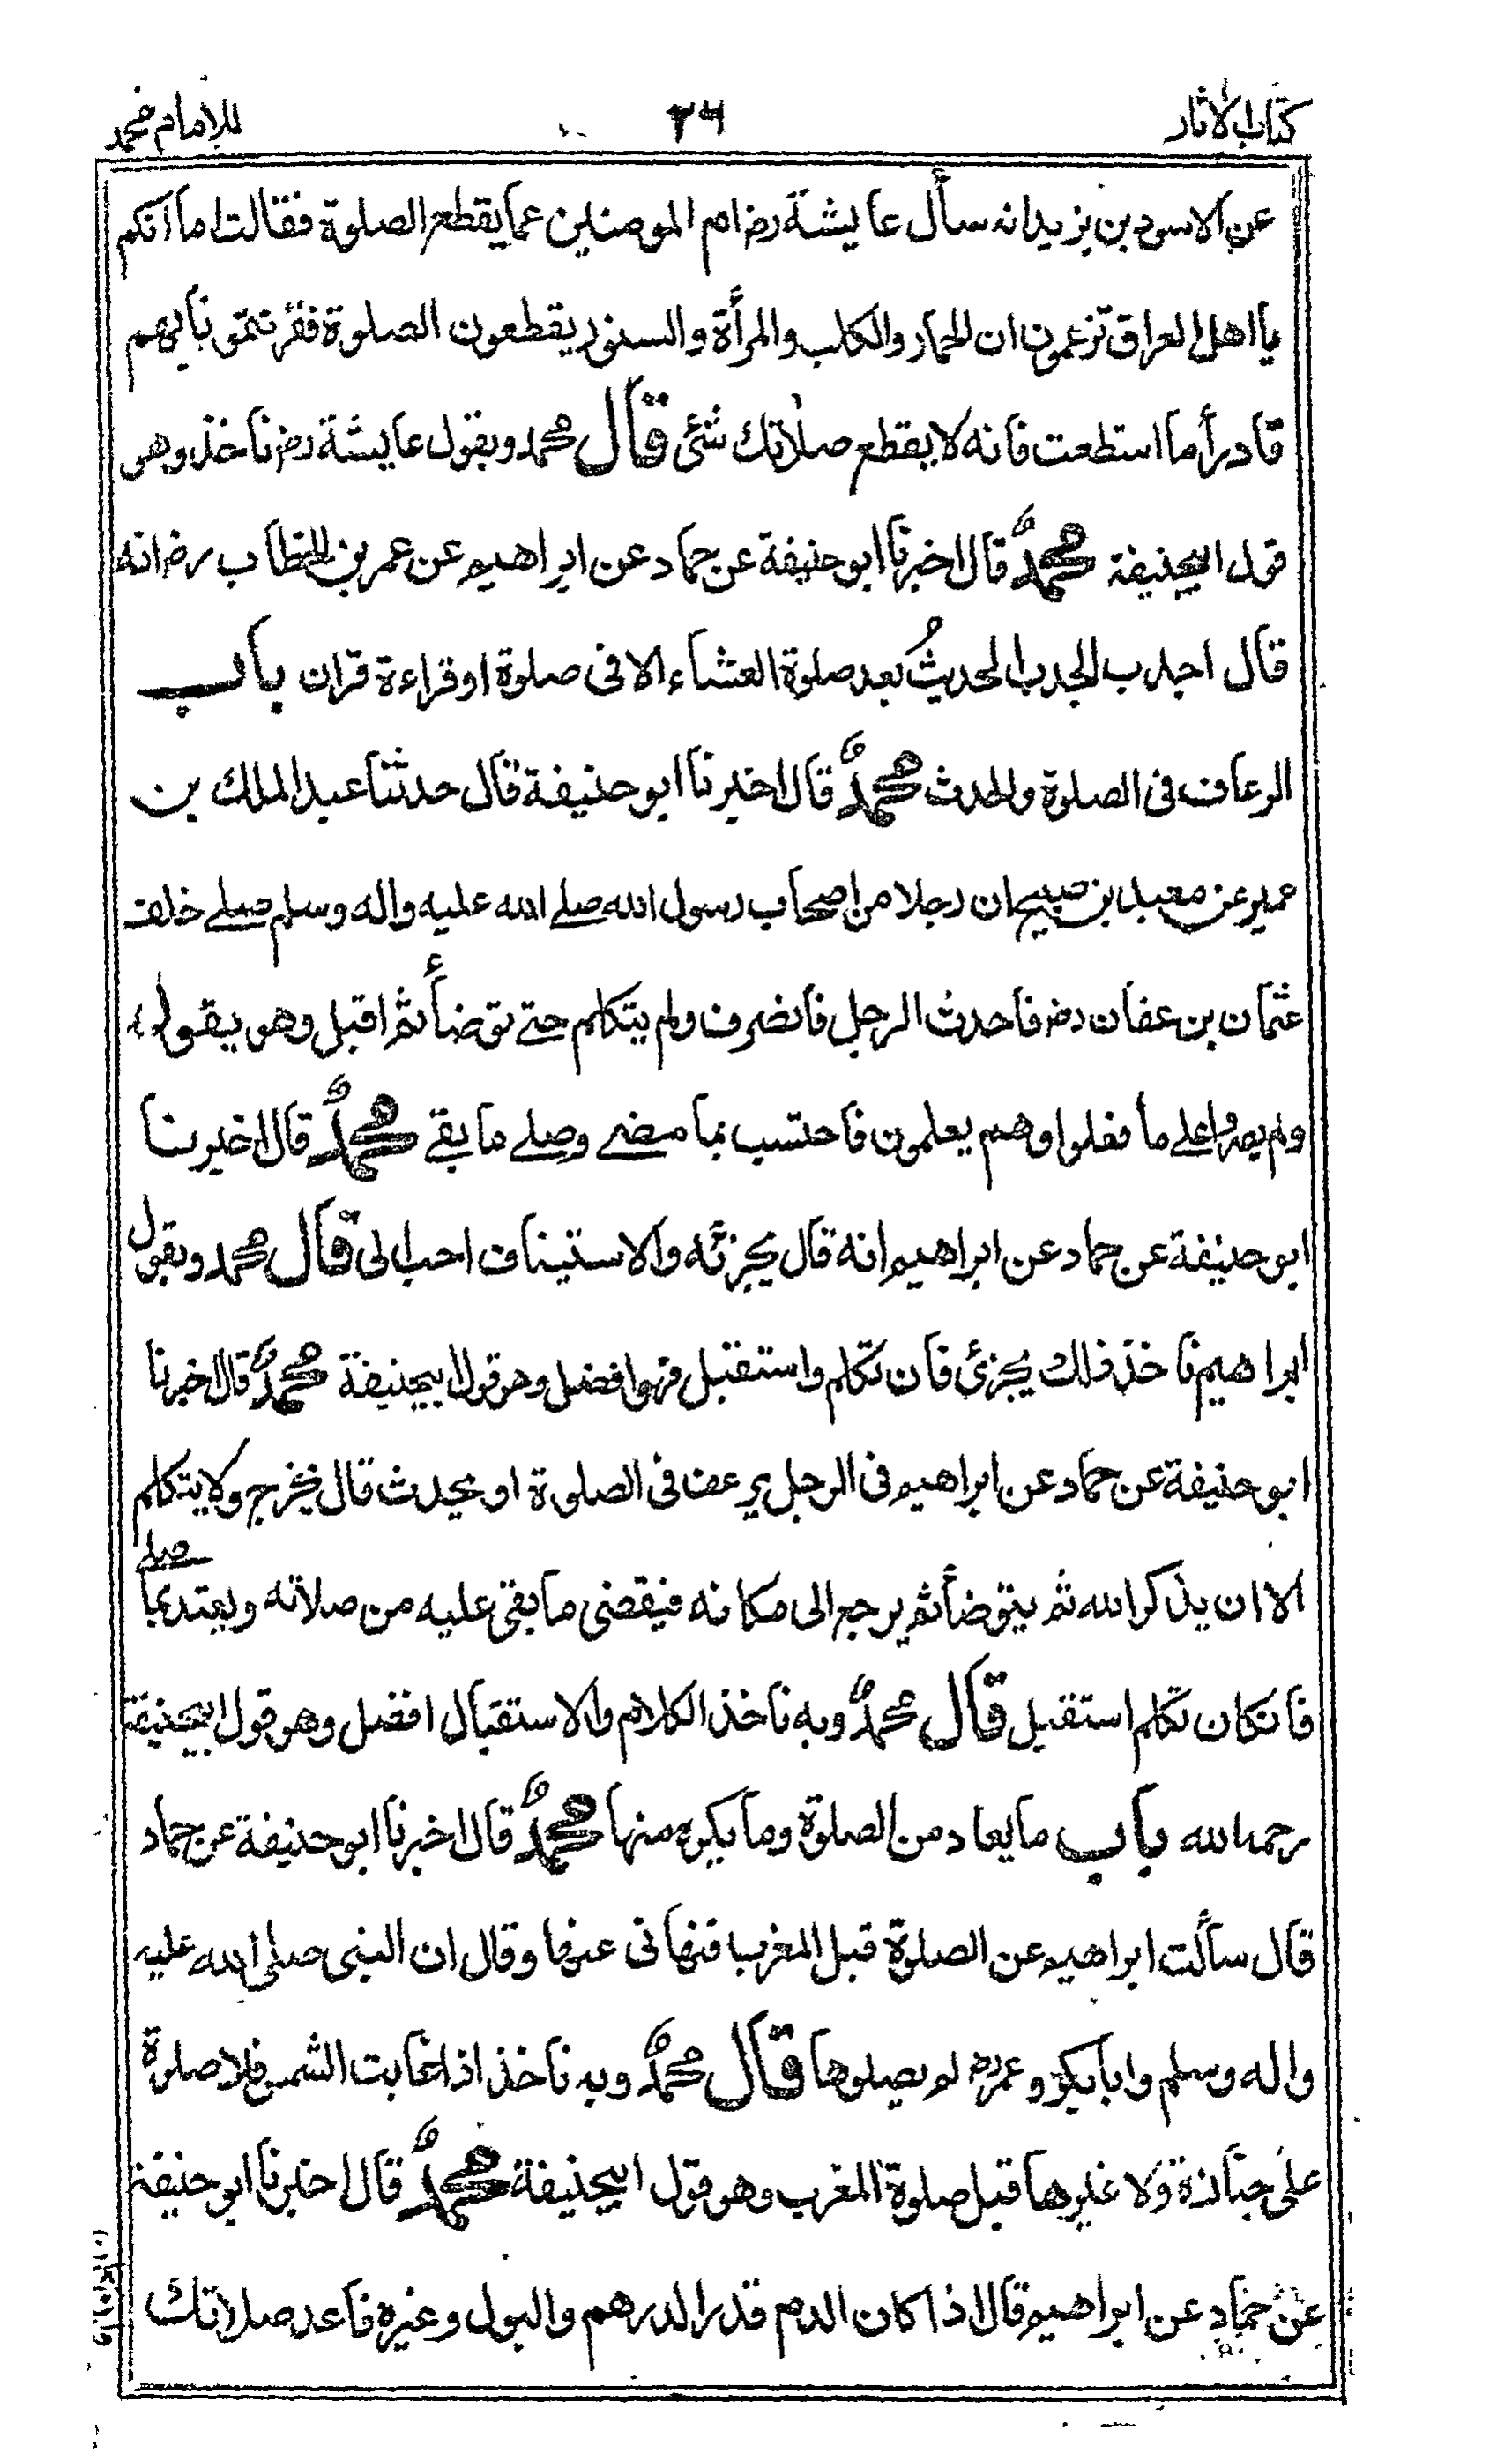 كتاب الاثار ٢٦ للامام محمد
عن الاسود بن يزيد انه سأل عايشة رض ام المومنين عما يقطع الصلوة فقالت اما انكم
يا اهل العراق تزعمون ان الحمار والكلب والمرأة والسنور يقطعون الصلوة فقرنتمونا بهم
قادرأ ما استطعت فانه لا يقطع صلاتك شئ قال محمد وبقول عايشة رض ناخذ وهو
قول ابيحنيفة محمد قال اخبرنا ابو حنيفة عن حماد عن ابراهيم عن عمر بن الخطاب رض انه
قال اجدب الجدب الحديث بعد صلوة العشاء الا فى صلوة او قراءة قران باب
الرعاف فى الصلوة والحدث محمد قال اخبرنا ابو حنيفة قال حدثنا عبد الملك بن
عمير عن معبد بن صبيح ان رجلا من اصحاب رسول الله صلے الله عليه واله وسلم صلے خلف
عثمان بن عفان رض فاحدث الرجل فانصرف ولم يتكلم حتے توضأ ثم اقبل وهو يقول
ولم يصروا علے ما فعلوا وهم يعلمون فاحتسب بما مضے وصلے ما بقے محمد قال اخبرنا
ابو حنيفة عن حماد عن ابراهيم انه قال يجزئه والاستيناف احب الى قال محمد وبقول
ابراهيم ناخذ ذلك يجزئ فان تكلم واستقبل فهو افضل وهو قول ابيحنيفة محمد قال اخبرنا
ابو حنيفة عن حماد عن ابراهيم فى الرجل يرعف فى الصلوة او يحدث قال يخرج ولا يتكلم
الا ان يذكر الله ثم يتوضأ ثم يرجع الى مكانه فيقضى ما بقى عليه من صلاته ويعتد بما صلے
فانكان تكلم استقبل قال محمد وبه ناخذ الكلام والاستقبال افضل وهو قول ابيحنيفة
رحمه الله باب ما يعاد من الصلوة وما يكره منها محمد قال اخبرنا ابو حنيفة عن حماد
قال سألت ابراهيم عن الصلوة قبل المغرب فنهانى عنها وقال ان النبى صلى الله عليه
واله وسلم وابابكر وعمر رض لم يصلوها قال محمد وبه ناخذ اذا غابت الشمس فلا صلوة
على جنازة ولا غيرها قبل صلوة المغرب وهو قول ابيحنيفة محمد قال اخبرنا ابو حنيفة
عن حماد عن ابراهيم قال اذا كان الدم قدر الدرهم والبول وغيره فاعد صلاتك